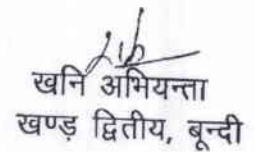 खनि अभियन्ता
खण्ड़ द्वितीय, बून्दी